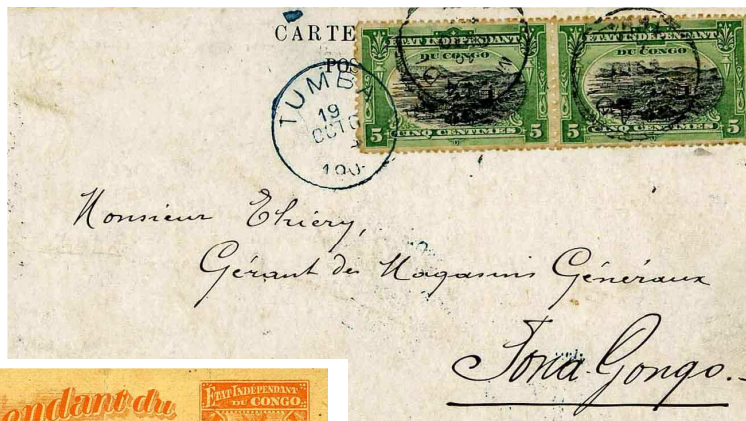 CARTE
POS
ETAT INDEPENDANT
DU CONGO
5 CINQ CENTIMES 5
ETAT INDEPENDANT
DU CONGO
5 CINQ CENTIMES 5
TUMBA
19
OCTO
190
Monsieur Thiéry,
Gérant des Magasins Généraux
Congo.
endant du
ETAT INDEPENDANT
DU CONGO